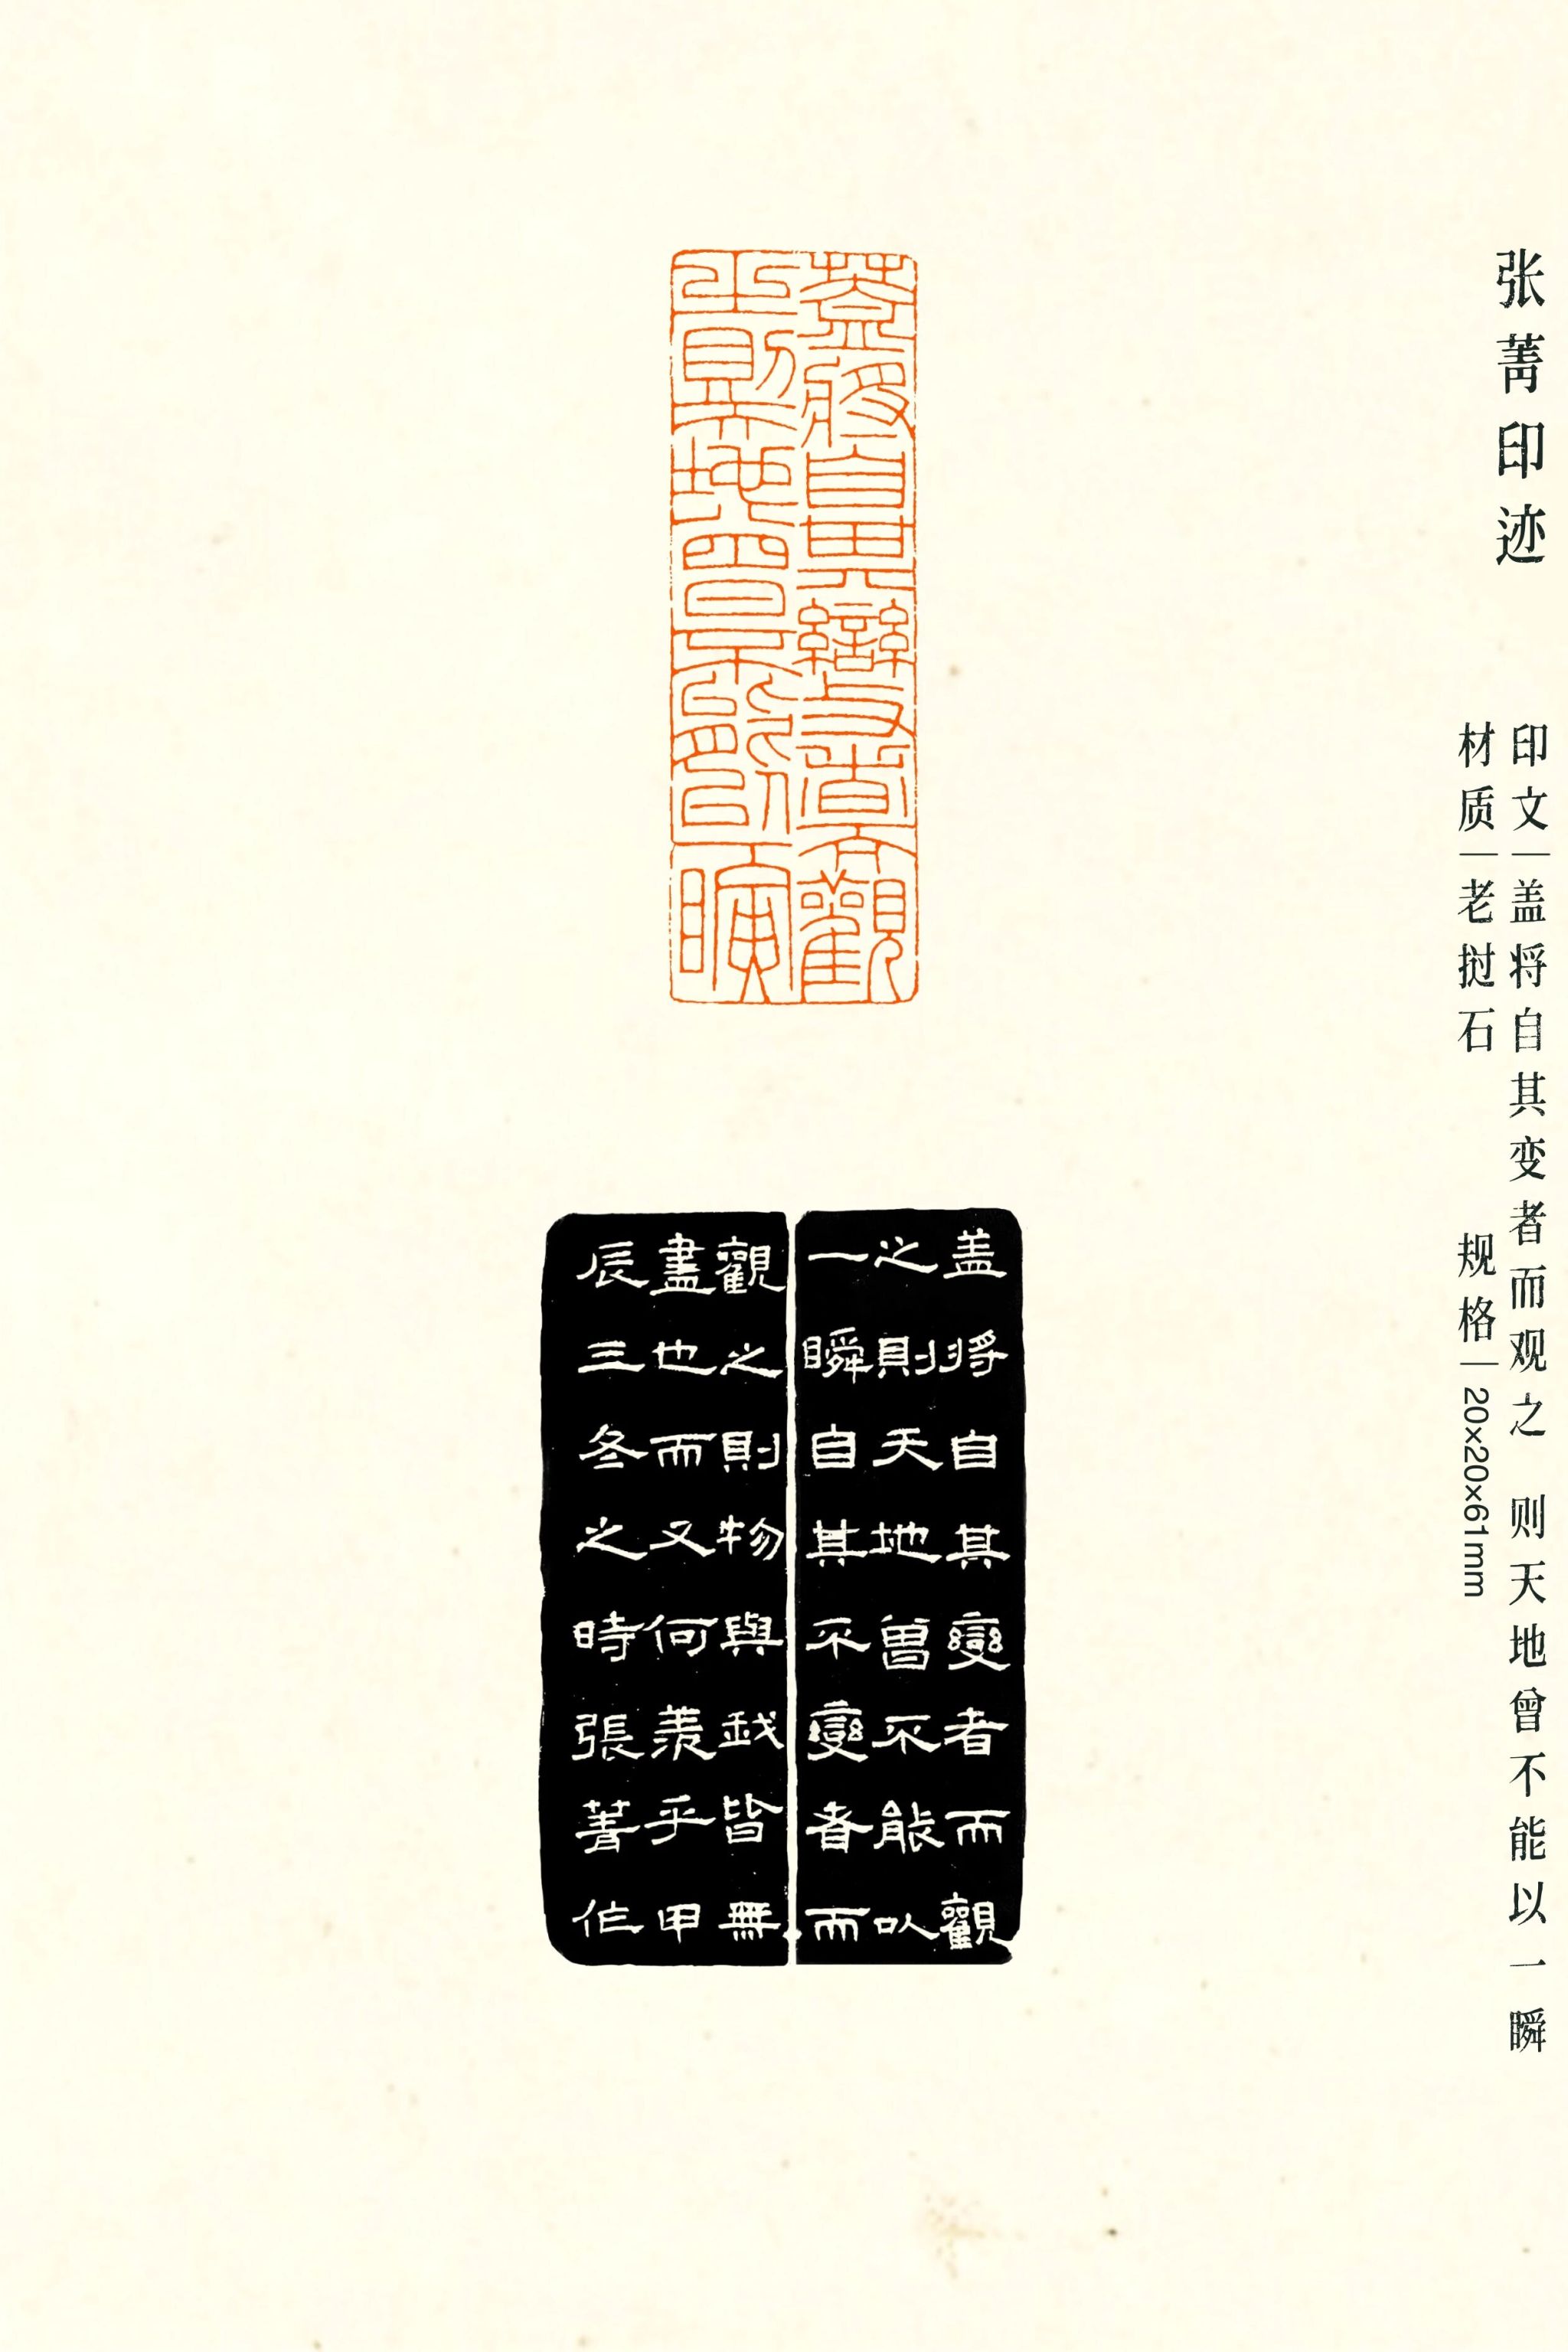 张菁印迹
印文｜盖将自其变者而观之 则天地曾不能以一瞬
材质｜老挝石 规格｜20×20×61mm
蓋將自其變者而觀
之則天地曾不能以一瞬
盖將自其變者而觀
之則天地曾不能以
一瞬自其不變者而
觀之則物與我皆無
盡也而又何羨乎甲
辰三冬之時張菁作